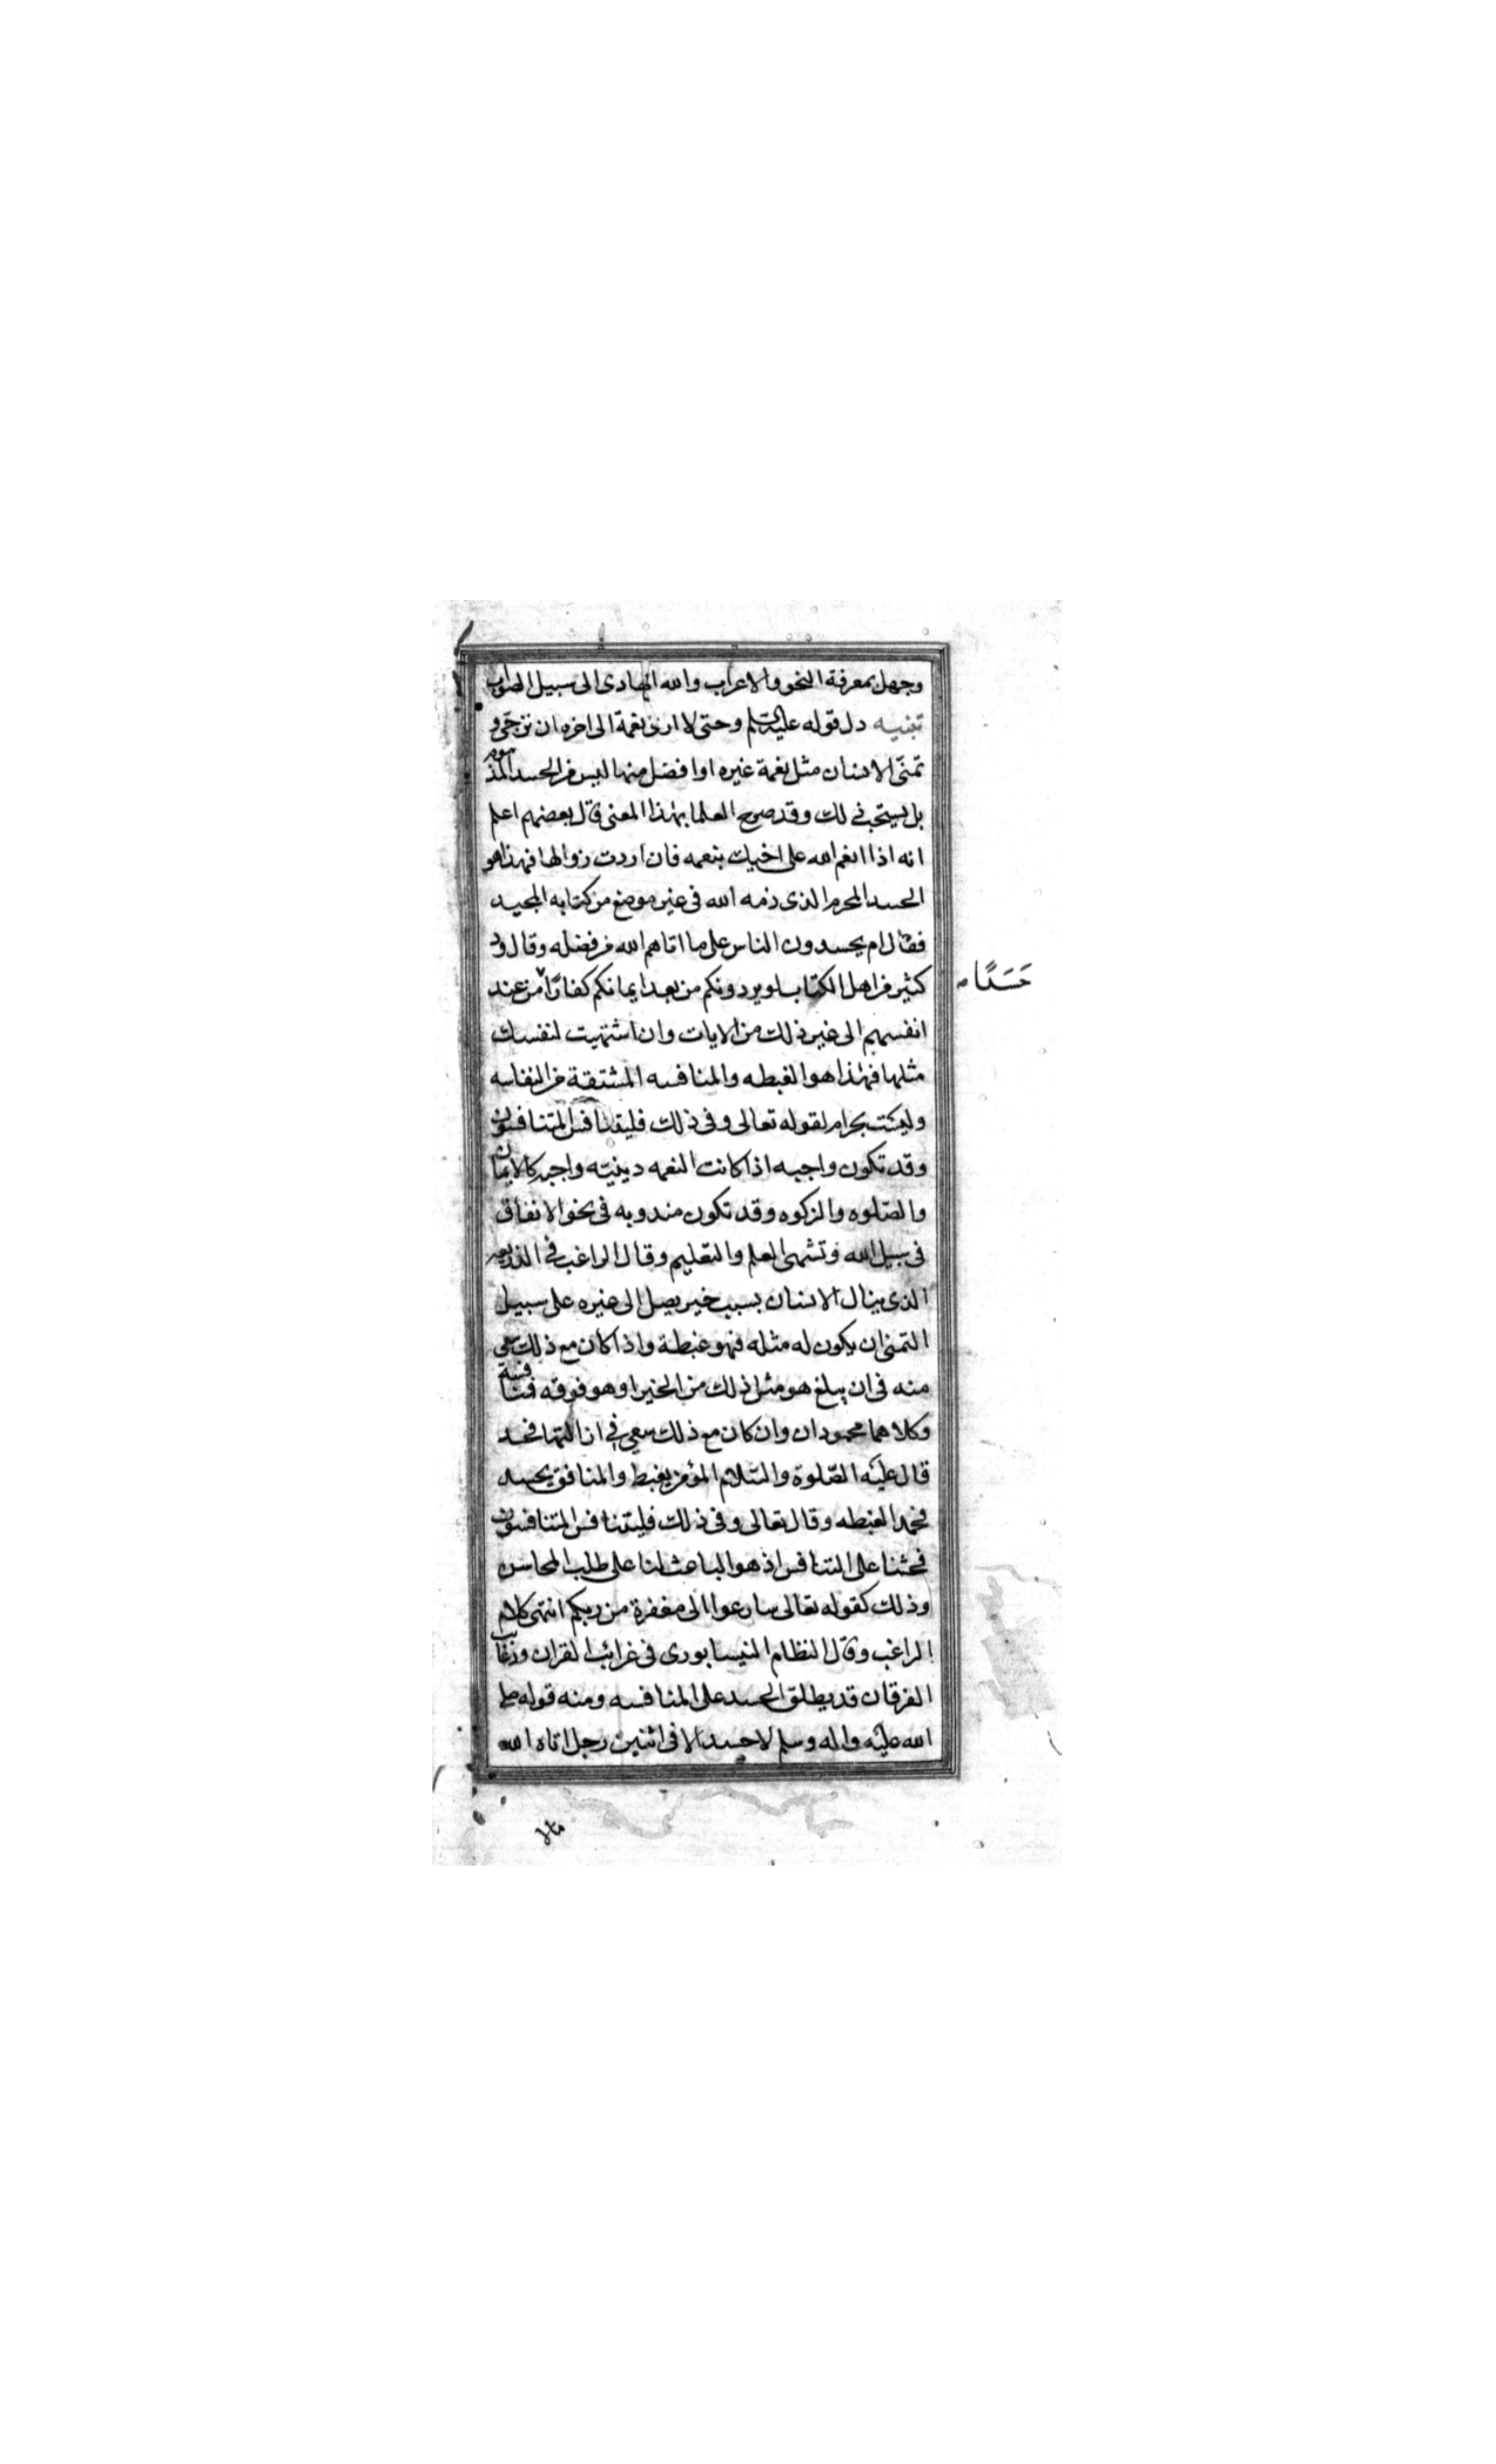 وجهل بمعرفة النحو والاعراب والله الهادى الى سبيل الصواب
تنبيه دل قوله عليه السلم وحتى لا ارى نعمة الى اخره ان ترجى و
تمنى الانسان مثل نعمة غيره او افضل منها ليس من الحسد المذموم
بل يستحب ذلك وقد صرح العلما بهذا المعنى قال بعضهم اعلم
انه اذا انعم الله على اخيك بنعمه فان اردت زوالها فهذا هو
الحسد المحرم الذى ذمه الله فى غير موضع من كتابه المجيد
فقال ام يحسدون الناس على ما اتاهم الله من فضله وقال ود
كثير من اهل الكتاب لو يردونكم من بعد ايمانكم كفارًا من عند
حَسَدًا
انفسهم الى غير ذلك من الايات وان اشتهيت لنفسك
مثلها فهذا هو الغبطه والمنافسه المشتقة من النفاسه
وليست بحرام لقوله تعالى وفى ذلك فليتنافس المتنافسون
وقد تكون واجبه اذا كانت النعمه دينيّه واجبه كالايمان
والصّلوه والزكوه وقد تكون مندوبه فى نحو الانفاق
فى سبيل الله وتشهى العلم والتعليم وقال الراغب فى الذريعه
الذى ينال الانسان بسبب خير يصل الى غيره على سبيل
التمنى ان يكون له مثله فهو غبطة واذا كان مع ذلك سعى
منه فى ان يبلغ هو مثل ذلك من الخير او هو فوقه فمنافسة
وكلاهما محمودان وان كان مع ذلك سعى فى ازالتها فحسد
قال عليه الصّلوة والسّلام المؤمن يغبط والمنافق يحسد
فحمد الغبطه وقال تعالى وفى ذلك فليتنافس المتنافسون
فحثنا على التنافس اذ هو الباعث لنا على طلب المحاسن
وذلك كقوله تعالى سارعوا الى مغفرة من ربكم انتهى كلام
الراغب وقال النظام النيسابورى فى غرائب القران ورغائب
الفرقان قد يطلق الحسد على المنافسه ومنه قوله صلى
الله عليه واله وسلم لا حسد الا فى اثنين رجل اتاه الله